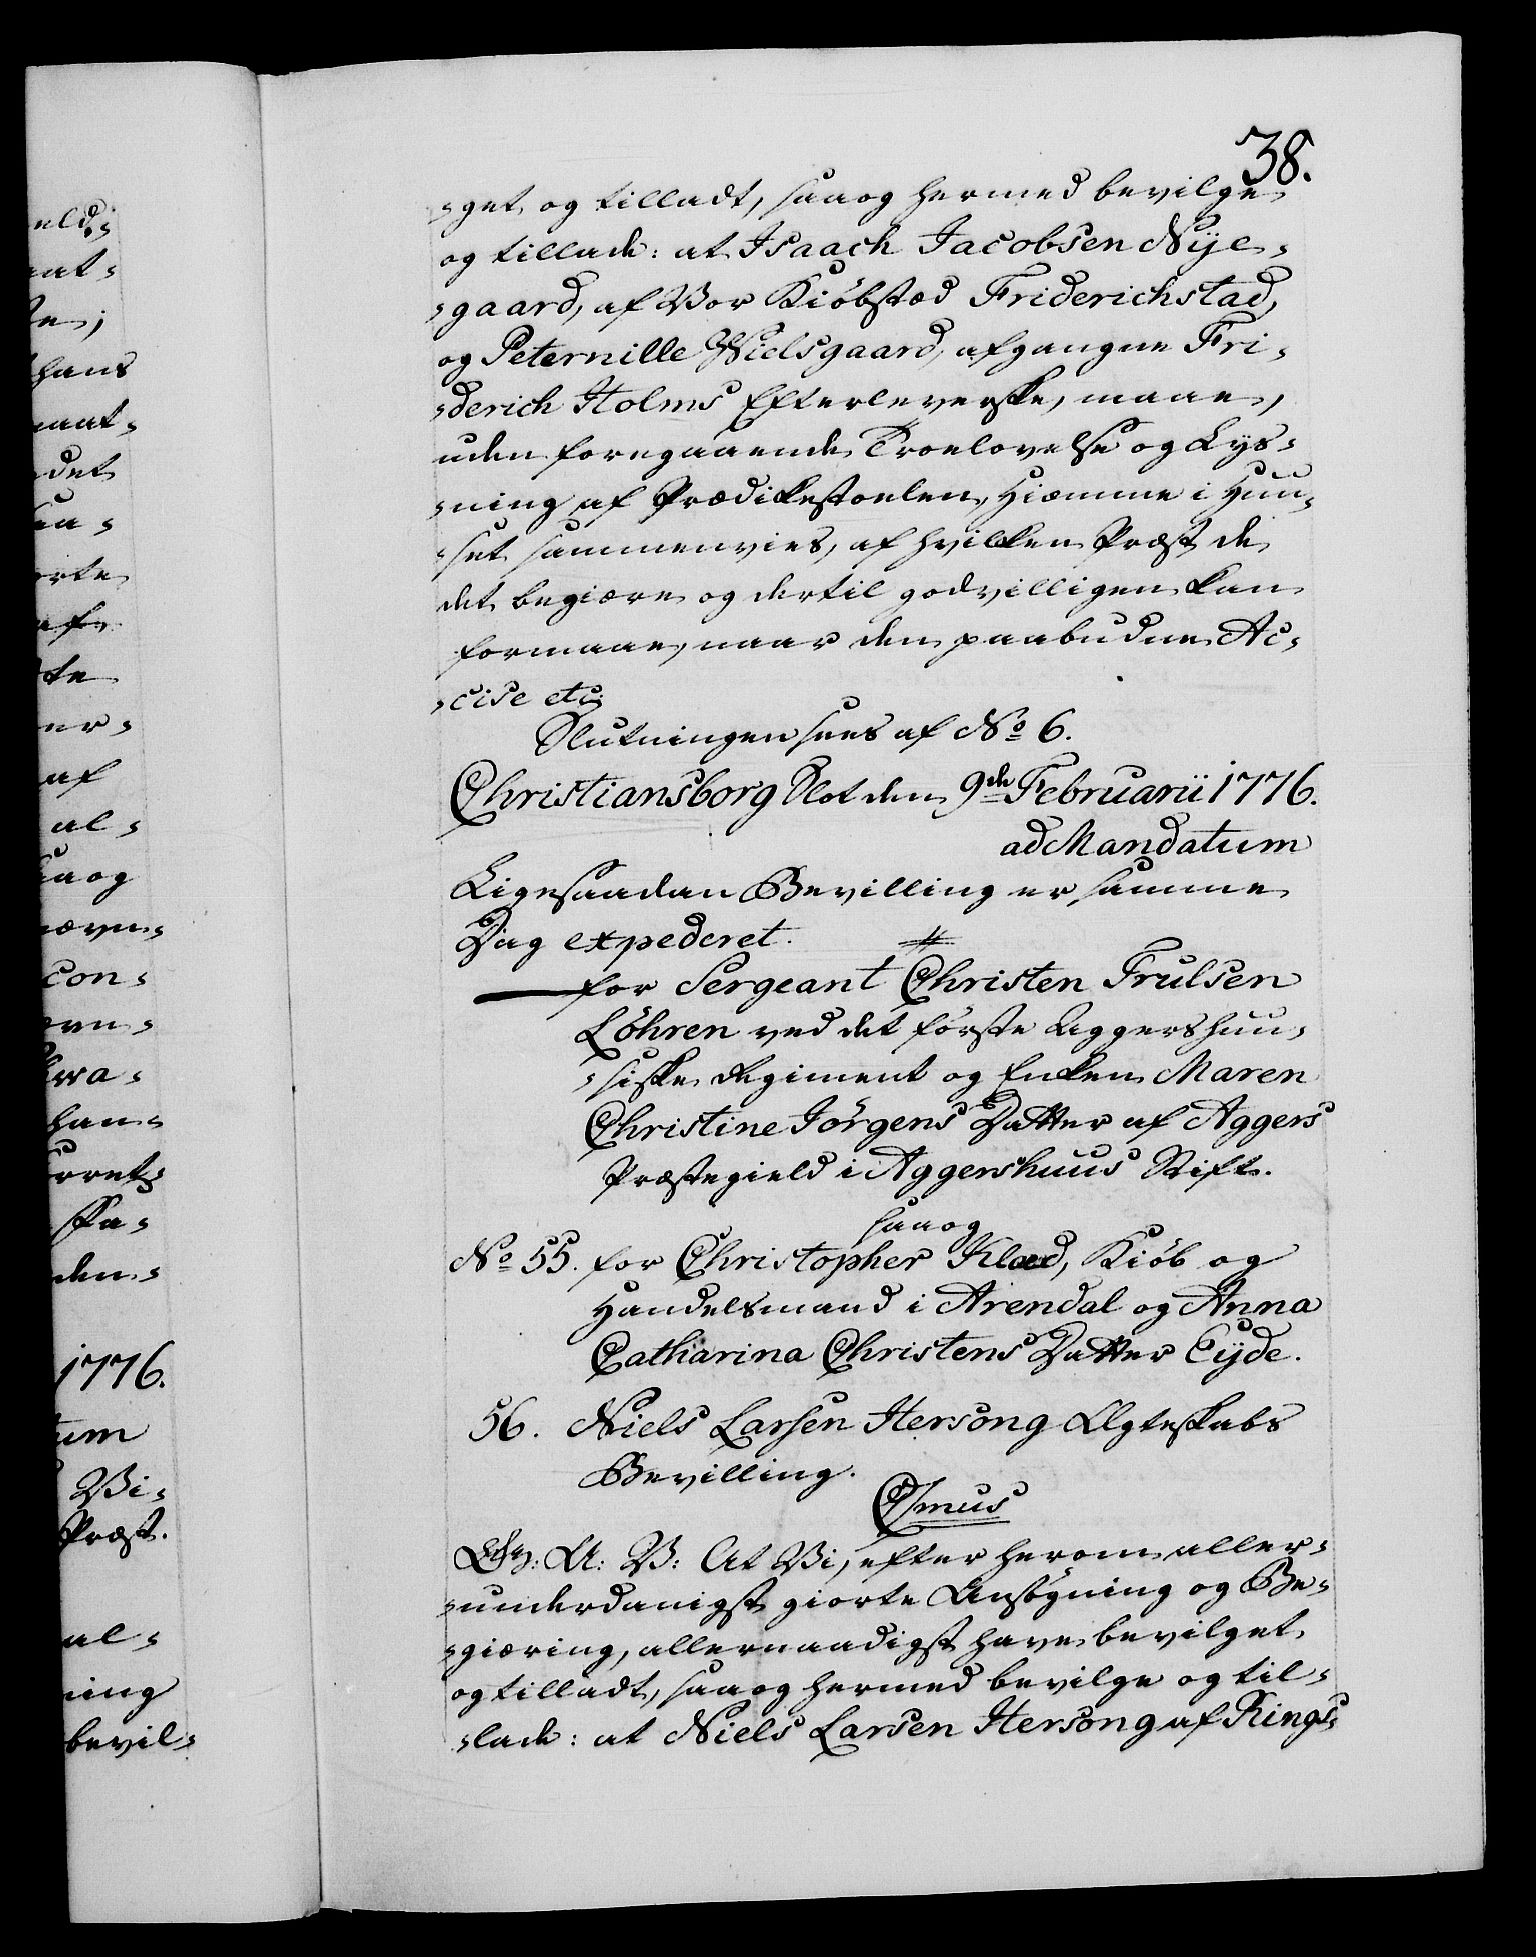 38.
-get og tilladt, saa og hermed bevilge
og tillade: at Isaach Jacobsen Nÿe-
-gaard, af Vor Kiöbstæd Friderichstad,
og Peternille Nielsgaard, afgangne Fri-
-derich Holms Efterleverske, maae,
uden foregaaende Troelovelse og Lys-
-ning af Prædikestoelen, Hiemme i Huu-
-set sammenvies, af hvilken Præst de
det begiære og dertil godvilligen kan
formaae, naar den paabudne Ac-
-cise etc;
Slutningen sees af No 6.
Christiansborg Slot den 9de Februarii 1776.
ad Mandatum
Ligesaadan Bevilling er samme
Dag expederet.
for Sergeant Christen Frulsen
Löhren ved det förste Aggershuu-
-siske Regiment og Enken Maren
Christine Jörgens Datter af Aggers
Præstegield i Aggershuus Stift.
saa og
No 55. for Christopher Klæd, Kiöb og
Handelsmand i Arendal og Anna
Catharina Christens Datter Eÿde.
56. Niels Larsen Hersong Ægteskabs
Bevilling.
C7mus
A: V: At Vi, efter herom aller-
-underdanigst giorte Ansögning og Be-
-giæring, allernaadigst have bevilget
og tilladt, saa og hermed bevilge og til-
-lade: at Niels Larsen Hersong af Rings-
eld:-
aat-
hans
maat-
det
orte
af
te
er-
af
al-
saa og
nævn-
con-
han-
den-
1776.
tum
Vi-
Præst.
al-
ning
bevil-